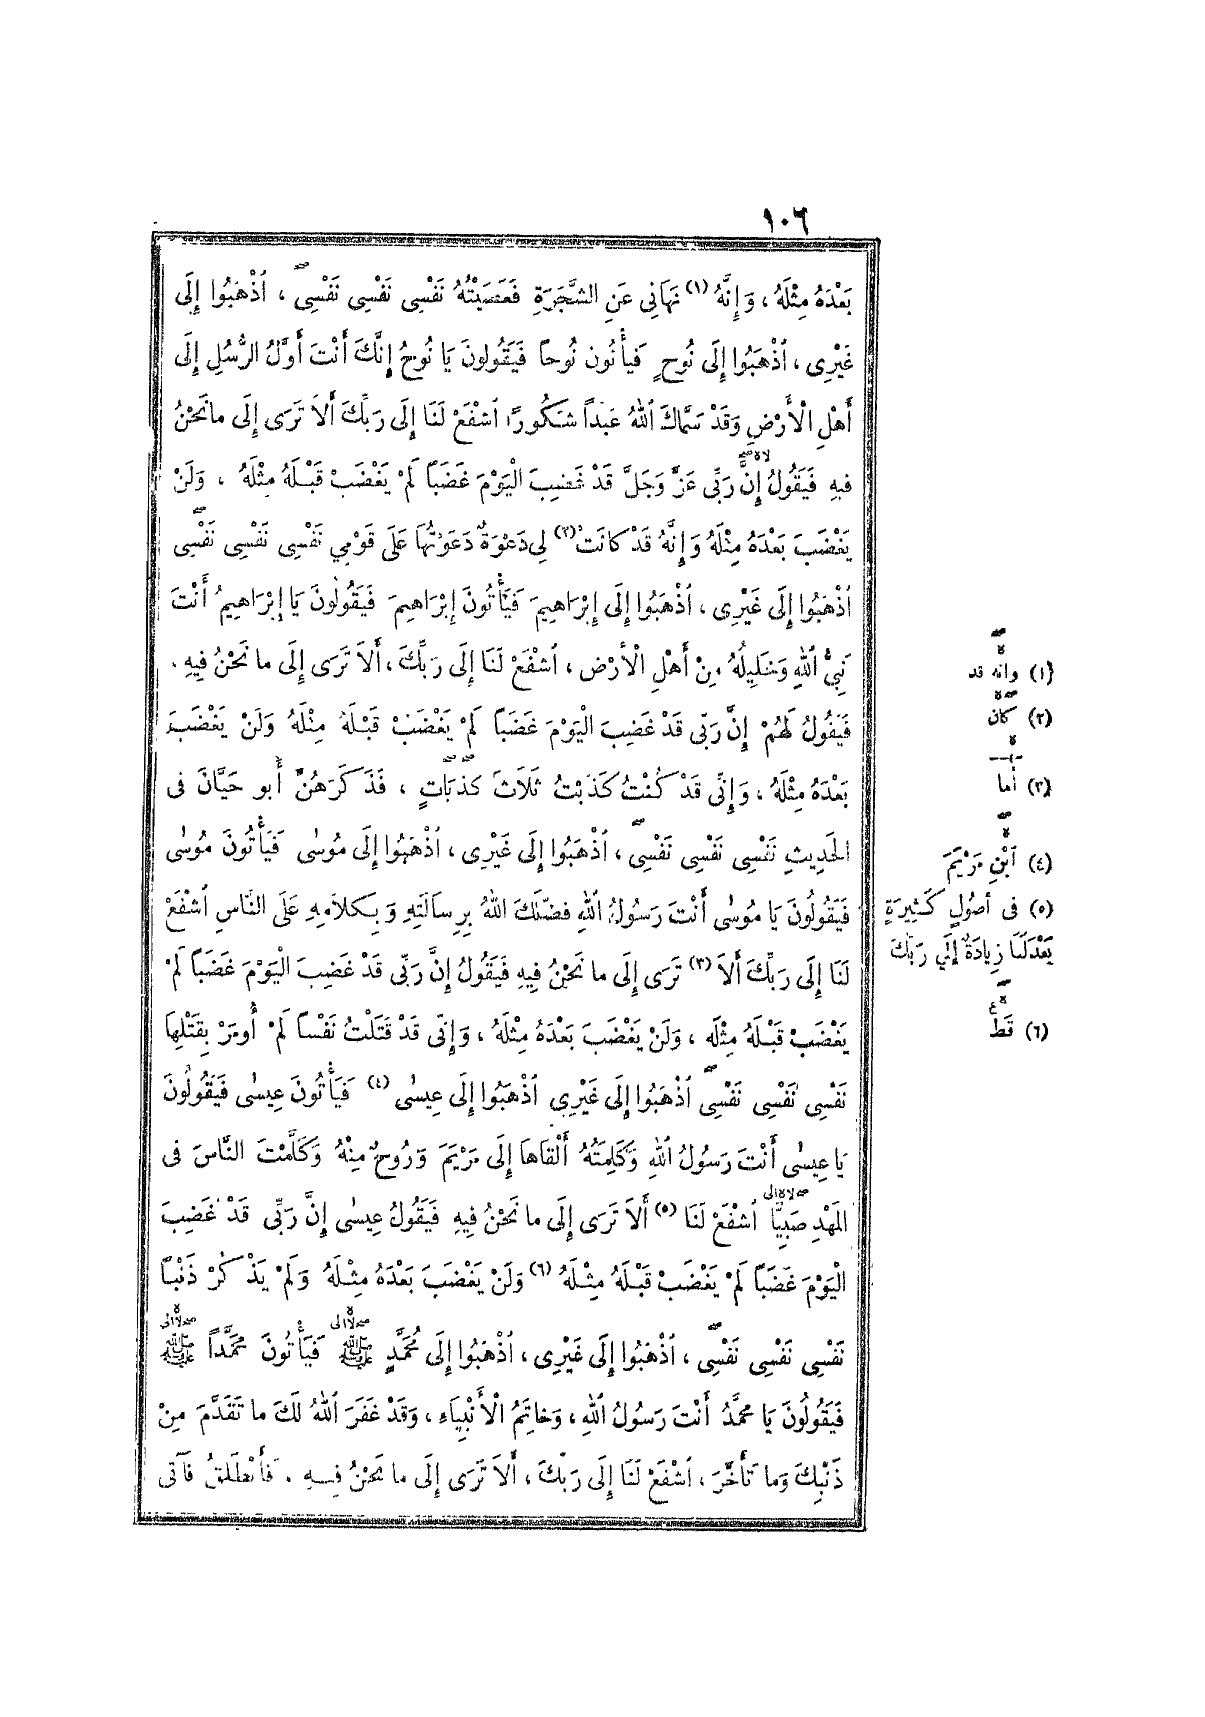 ١٠٦
بَعْدَهُ مِثْلَهُ ، وَإِنَّهُ (١) نَهَانِى عَنِ الشَّجَرَةِ فَعَصَيْتُهُ نَفْسِى نَفْسِى نَفْسِى ، ٱذْهَبُوا إِلَى
غَيْرِى ، ٱذْهَبُوا إِلَى نُوحٍ فَيَأْتُون نُوحًا فَيَقُولونَ يَا نُوحُ إِنَّكَ أَنْتَ أَوَّلُ الرُّسُلِ إِلَى
أَهْلِ الْأَرْضِ وَقَدْ سَمَّاكَ ٱللهُ عَبْداً شَكُورًا ٱشْفَعْ لَنَا إِلَى رَبِّكَ أَلاَ تَرَى إِلَى مانَحْنُ
فِيهِ فَيَقُولُ إِنَّ رَبِّى عَزَّ وَجَلَّ قَدْ غَضِبَ الْيَوْمَ غَضَبًا لَمْ يَغْضَبْ قَبْلَهُ مِثْلَهُ ، وَلَنْ
يَغْضَبَ بَعْدَهُ مِثْلَهُ وَإِنَّهُ قَدْ كانَتْ (٢) لِى دَعْوَةٌ دَعَوْتُهَا عَلَى قَوْمِي نَفْسِى نَفْسِى نَفْسِى
ٱذْهَبُوا إِلَى غَيْرِى ، ٱذْهَبُوا إِلَى إِبْرَاهِيمَ فَيَأْتُونَ إِبْرَاهِيمَ فَيَقُولُونَ يَا إِبْرَاهِيمُ أَنْتَ
نَبِىُّ ٱللهِ وَخَلِيلُهُ مِنْ أَهْلِ الْأَرْضِ ، ٱشْفَعْ لَنَا إِلَى رَبِّكَ ، أَلاَ تَرَى إِلَى ما نَحْنُ فِيهِ .
فَيَقُولُ لَهُمْ إِنَّ رَبِّى قَدْ غَضِبَ الْيَوْمَ غَضَبًا لَمْ يَغْضَبْ قَبْلَهُ مِثْلَهُ وَلَنْ يَغْضَبَ
بَعْدَهُ مِثْلَهُ ، وَإِنِّى قَدْ كُنْتُ كَذَبْتُ ثَلاَثَ كَذَبَاتٍ ، فَذَكَرَهُنَّ أَبو حَيَّانَ فى
الحَدِيثِ نَفْسِى نَفْسِى نَفْسِى ، ٱذْهَبُوا إِلَى غَيْرِى ، ٱذْهَبُوا إِلَى مُوسٰى فَيَأْتُونَ مُوسٰى
فَيَقُولُونَ يَا مُوسٰى أَنْتَ رَسُولُ ٱللهِ فَضَّلَكَ اللهُ بِرِسالَتِهِ وَبِكَلاَمِهِ عَلَى النَّاسِ ٱشْفَعْ
لَنَا إِلَى رَبِّكَ أَلاَ (٣) تَرَى إِلَى ما نَحْنُ فِيهِ فَيَقُولُ إِنَّ رَبِّى قَدْ غَضِبَ الْيَوْمَ غَضَبًا لَمْ
يَغْضَبْ قَبْلَهُ مِثْلَه ، وَلَنْ يَغْضَبَ بَعْدَهُ مِثْلَهُ ، وَإِنِّى قَدْ قَتَلْتُ نَفْسًا لَمْ أُومَرْ بِقَتْلِهَا
نَفْسِى نَفْسِى نَفْسِى ٱذْهَبُوا إِلَى غَيْرِى ٱذْهَبُوا إِلَى عِيسٰى (٤) فَيَأْتُونَ عِيسٰى فَيَقُولُونَ
يَا عِيسٰى أَنْتَ رَسُولُ ٱللهِ وَكَلِمَتُهُ أَلْقَاهَا إِلَى مَرْيَمَ وَرُوحٌ مِنْهُ وَكَلَّمْتَ النَّاسَ فى
المَهْدِ صَبِيًّا ٱشْفَعْ لَنَا (٥) أَلاَ تَرَى إِلَى ما نَحْنُ فِيهِ فَيَقُولُ عِيسٰى إِنَّ رَبِّى قَدْ غَضِبَ
الْيَوْمَ غَضَبًا لَمْ يَغْضَبْ قَبْلَهُ مِثْلَهُ (٦) وَلَنْ يَغْضَبَ بَعْدَهُ مِثْلَهُ وَلَمْ يَذْكُرْ ذَنْبًا
نَفْسِى نَفْسِى نَفْسِى ، ٱذْهَبُوا إِلَى غَيْرِى ، ٱذْهَبُوا إِلَى مُحَمَّدٍ ﷺ فَيَأْتُونَ مُحَمَّداً ﷺ
فَيَقُولُونَ يَا مُحَمَّدُ أَنْتَ رَسُولُ ٱللهِ ، وَخاتِمُ الْأَنْبِيَاءِ ، وَقَدْ غَفَرَ ٱللهُ لَكَ ما تَقَدَّمَ مِنْ
ذَنْبِكَ وَما تَأَخَّرَ ، ٱشْفَعْ لَنَا إِلَى رَبِّكَ ، أَلاَ تَرَى إِلَى ما نَحْنُ فِيهِ . فَأَنْطَلِقُ فَآتى
(١) وانه قد
(٢) كان
(٣) أما
(٤) ٱبْنِ مَرْيَمَ
(٥) فى أصُولٍ كَثِيرَةٍ
بَعْدَلَنَا زِيَادَةُ إِلَى رَبِّكَ
(٦) قَطُّ